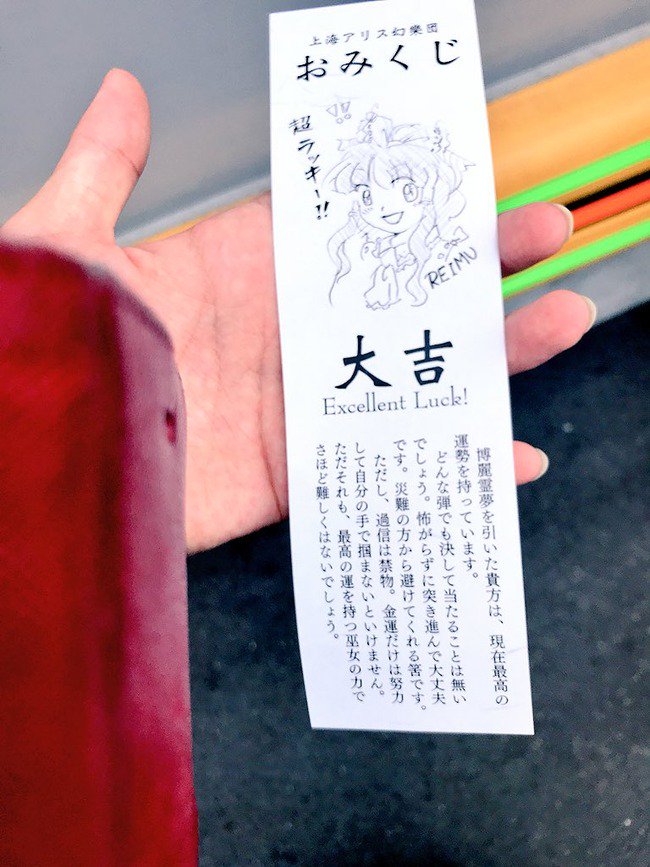 上海アリス幻樂団
おみくじ
超ラッキー!!
REIMU
大吉
Excellent Luck!
博麗霊夢を引いた貴方は、現在最高の
運勢を持っています。
どんな弾でも決して当たることは無い
でしょう。怖がらずに突き進んで大丈夫
です。災難の方から避けてくれる筈です。
ただし、過信は禁物。金運だけは努力
して自分の手で掴まないといけません。
ただそれも、最高の運を持つ巫女の力で
さほど難しくはないでしょう。